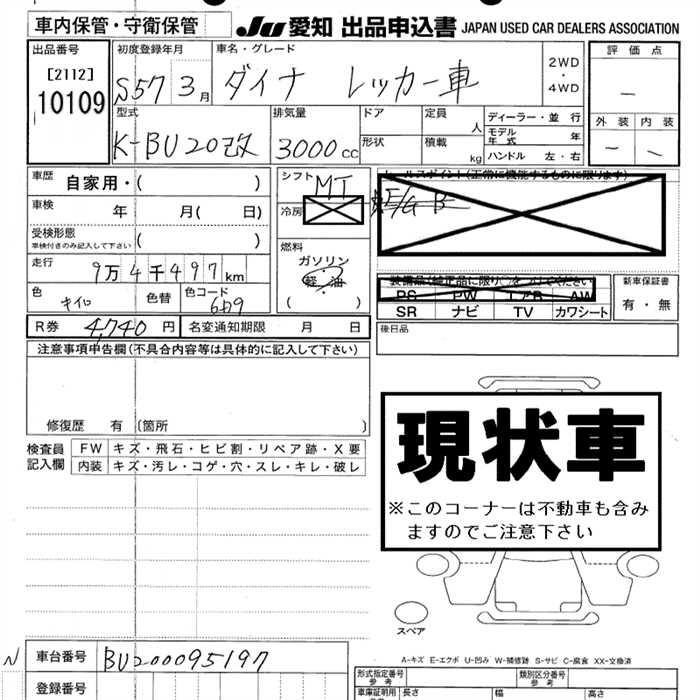 車内保管・守衛保管 JU 愛知 出品申込書 JAPAN USED CAR DEALERS ASSOCIATION
出品番号 初度登録年月 車名・グレード 2WD・4WD 評価点
[2112] 10109 S57 3月 ダイナ レッカー車 —
型式 排気量 ドア 定員 人 ディーラー・並行 外装 内装
K-BU20改 3000cc 形状 積載 kg モデル年式 年 — —
ハンドル 左・右
車歴 自家用・( ) シフト MT セールスポイント(正常に機能するものに限ります)
車検 年 月( 日) 冷房
受検形態 車検付きのみ記入して下さい ( ) 燃料
走行 9万4千497km ガソリン 軽油 ( )
装備品(純正品に限り○をつけてください 新車保証書
色 キイロ 色替 色コード 6D9 PS PW エアB AW 有・無
SR ナビ TV カワシート
R券 4,740円 名変通知期限 月 日 後日品
注意事項申告欄(不具合内容等は具体的に記入して下さい)
修復歴 有 (箇所 )
現状車
※このコーナーは不動車も含み
ますのでご注意下さい
検査員記入欄 FW キズ・飛石・ヒビ割・リペア跡・X要
内装 キズ・汚レ・コゲ・穴・スレ・キレ・破レ
スペア
A-キズ E-エクボ U-凹み W-補修跡 S-サビ C-腐食 XX-交換済
N 車台番号 BU200095197
型式指定番号 参考 類別区分番号 参考
登録番号 車庫証明用 長さ 幅 高さ